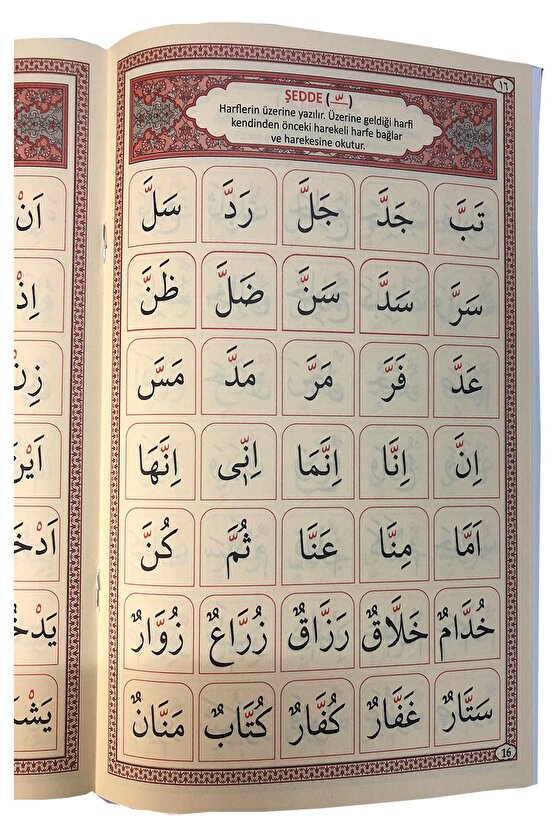 ١٦
ŞEDDE ( ـّـ )
Harflerin üzerine yazılır. Üzerine geldiği harfi
kendinden önceki harekeli harfe bağlar
ve harekesine okutur.
تَبَّ جَدَّ جَلَّ رَدَّ سَلَّ
سَرَّ سَدَّ سَنَّ ضَلَّ ظَنَّ
عَدَّ فَرَّ مَرَّ مَدَّ مَسَّ
اِنَّ اِنَّا اِنَّمَا اِنّٖى اِنَّهَا
اَمَّا مِنَّا عَنَّا ثُمَّ كُنَّ
خُدَّامٌ خَلَّاقٌ رَزَّاقٌ زُرَّاعٌ زُوَّارٌ
سَتَّارٌ غَفَّارٌ كُفَّارٌ كُتَّابٌ مَنَّانٌ
16
اَنْ
اِذْ